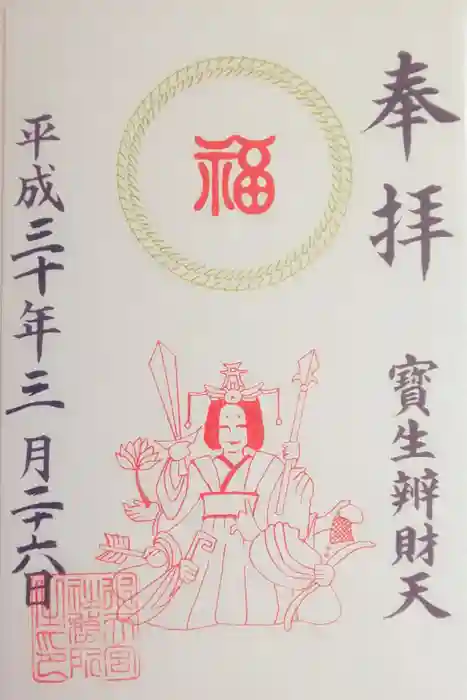 奉拝
寶生辨財天
福
平成三十年三月二十六日